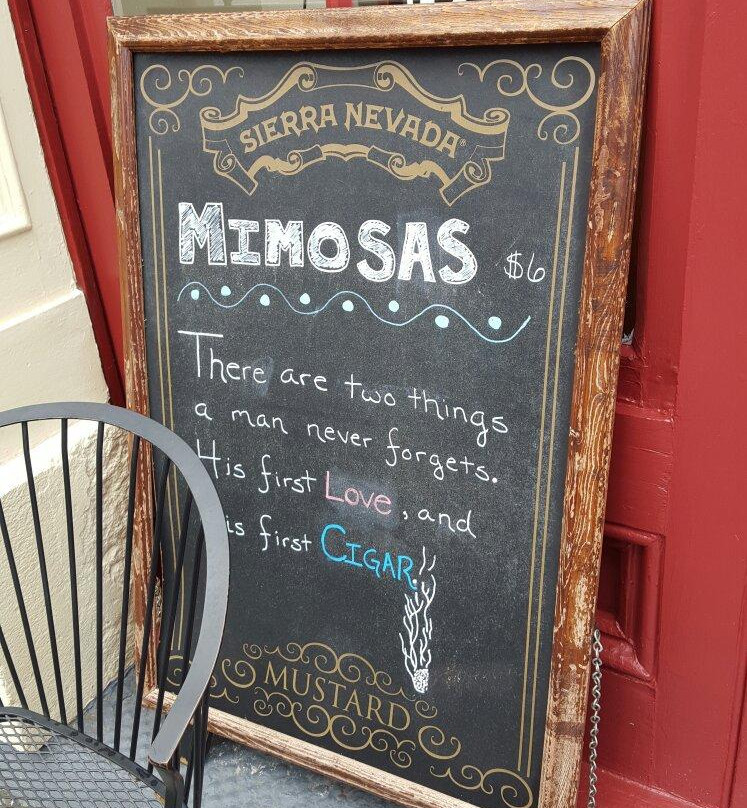 SIERRA NEVADA®
MIMOSAS $6
There are two things
a man never forgets.
His first Love, and
is first CIGAR.
MUSTARD